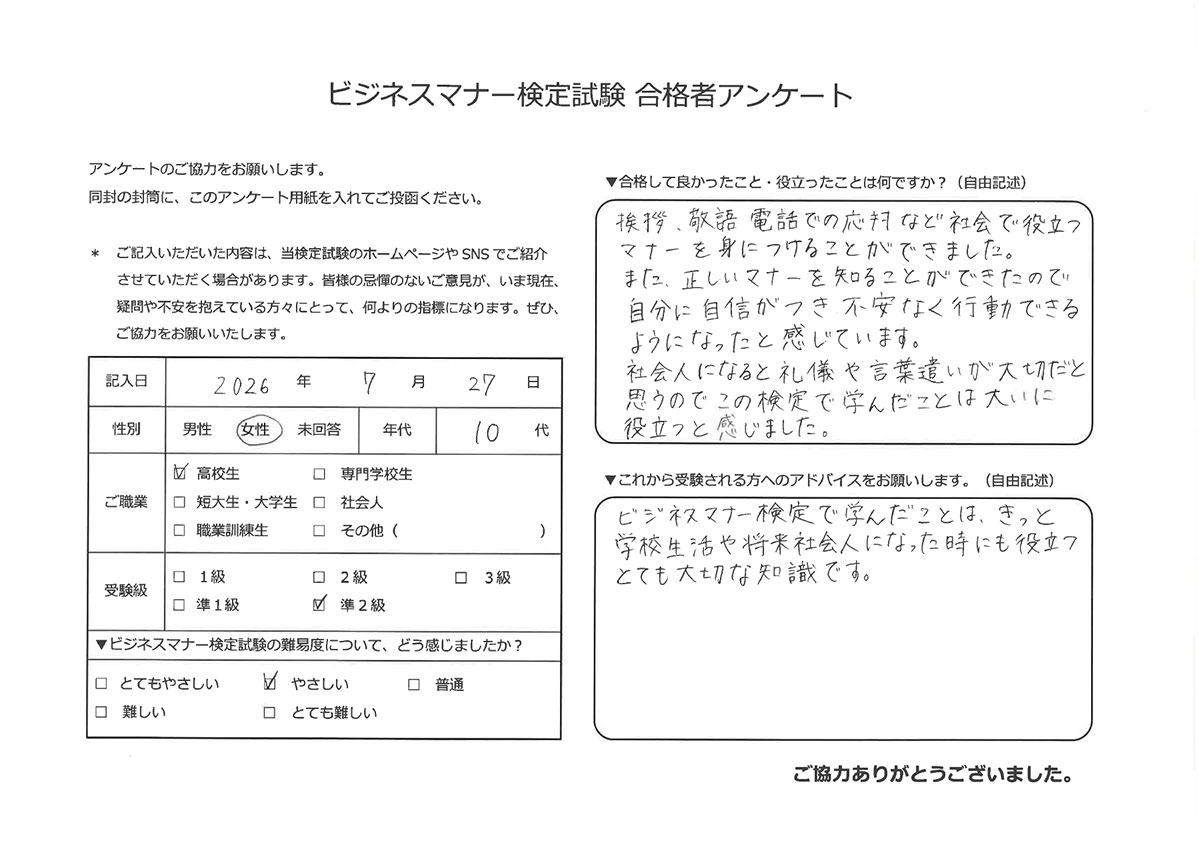 ビジネスマナー検定試験 合格者アンケート
アンケートのご協力をお願いします。
同封の封筒に、このアンケート用紙を入れてご投函ください。
* ご記入いただいた内容は、当検定試験のホームページや SNS でご紹介
させていただく場合があります。皆様の忌憚のないご意見が、いま現在、
疑問や不安を抱えている方々にとって、何よりの指標になります。ぜひ、
ご協力をお願いいたします。
記入日 2026 年 7 月 27 日
性別 男性 女性 未回答 年代 10 代
ご職業
☑ 高校生 □ 専門学校生
□ 短大生・大学生 □ 社会人
□ 職業訓練生 □ その他( )
受験級
□ 1級 □ 2級 □ 3級
□ 準1級 ☑ 準2級
▼ビジネスマナー検定試験の難易度について、どう感じましたか?
□ とてもやさしい ☑ やさしい □ 普通
□ 難しい □ とても難しい
▼合格して良かったこと・役立ったことは何ですか?(自由記述)
挨拶、敬語 電話での応対など社会で役立つ
マナーを身につけることができました。
また、正しいマナーを知ることができたので
自分に自信がつき 不安なく行動できる
ようになったと感じています。
社会人になると礼儀や言葉遣いが大切だと
思うのでこの検定で学んだことは大いに
役立つと感じました。
▼これから受験される方へのアドバイスをお願いします。(自由記述)
ビジネスマナー検定で学んだことは、きっと
学校生活や将来社会人になった時にも役立つ
とても大切な知識です。
ご協力ありがとうございました。